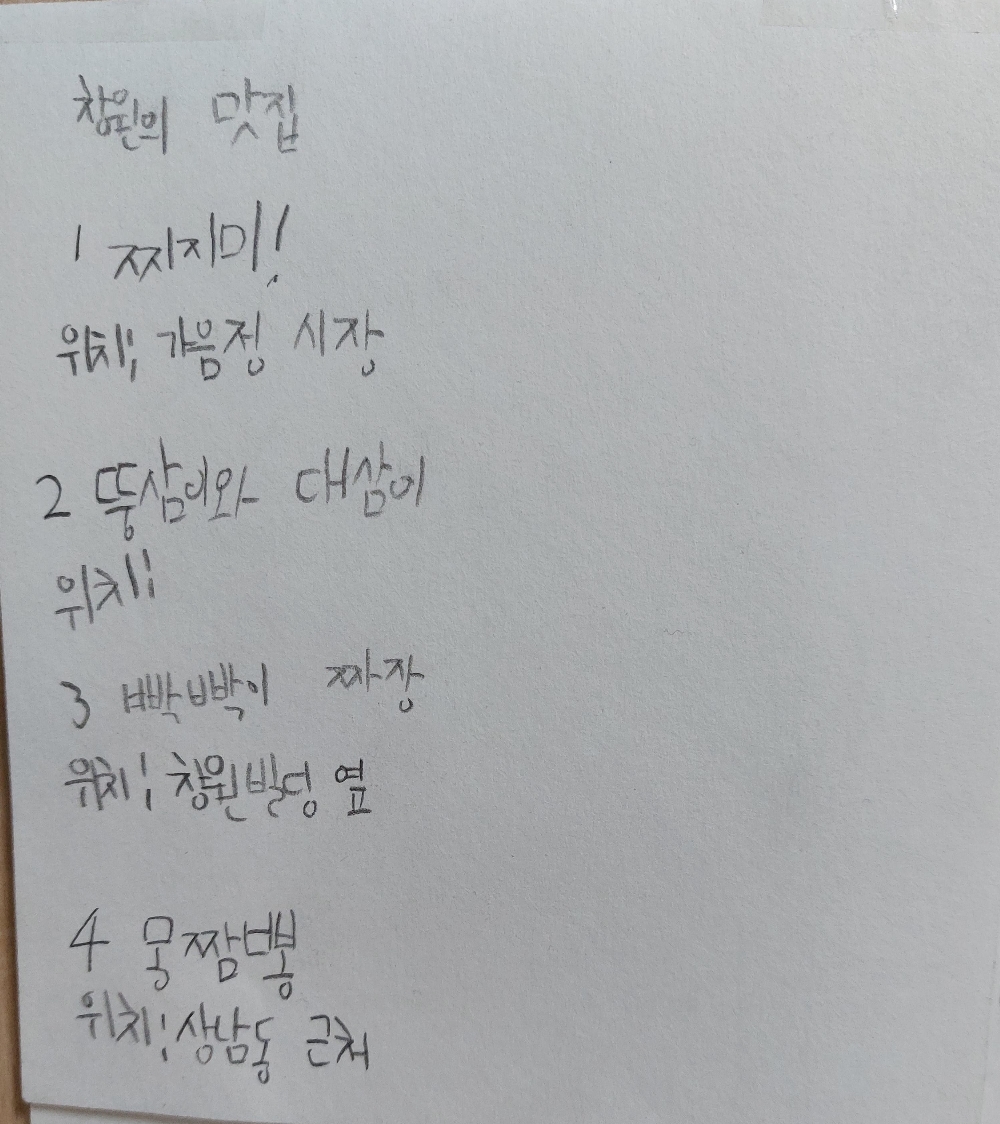 창원의 맛집
1 찌지미!
위치; 가음정 시장
2 뚱삼이와 대삼이
위치;
3 빡빡이 짜장
위치; 창원빌딩 옆
4 뭉짬뽕
위치; 상남동 근처